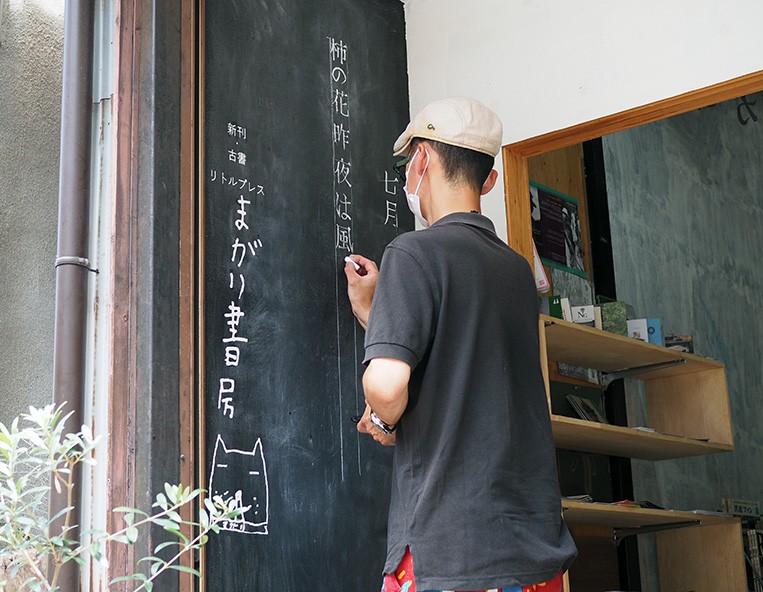 七月
柿の花昨夜は風
新刊
・
古書
リトルプレス
まがり書房